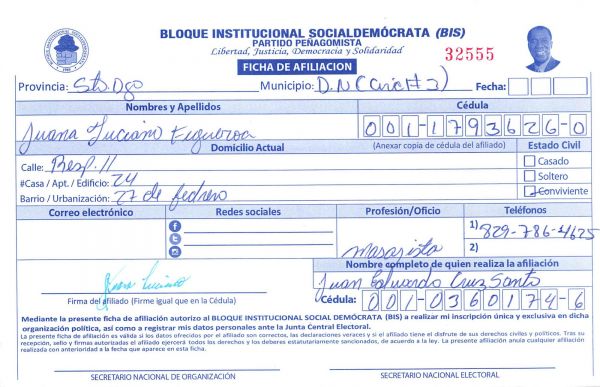 BLOQUE INSTITUCIONAL SOCIALDEMÓCRATA (BIS)
PARTIDO PEÑAGOMISTA
Libertad, Justicia, Democracia y Solidaridad
FICHA DE AFILIACION
32555
Provincia: Sto. Dgo Municipio: D.N (Circ # 3) Fecha:
Nombres y Apellidos Cédula
Juana Luciano Figuereoa 001-1793626-0
Domicilio Actual (Anexar copia de cédula del afiliado) Estado Civil
Calle: Resp. 11 Casado
#Casa / Apt. / Edificio: 24 Soltero
Barrio / Urbanización: 27 de febrero Conviviente
Correo electrónico Redes sociales Profesión/Oficio Teléfonos
1) 829-786-4625
2)
Masajista
Nombre completo de quien realiza la afiliación
Juana Luciano Juan Eduardo Cruz Santo
Firma del afiliado (Firme igual que en la Cédula) Cédula: 001-0360174-6
Mediante la presente ficha de afiliación autorizo al BLOQUE INSTITUCIONAL SOCIAL DEMÓCRATA (BIS) a realizar mi inscripción única y exclusiva en dicha
organización política, así como a registrar mis datos personales ante la Junta Central Electoral.
La presente ficha de afiliación es válida si los datos ofrecidos por el afiliado son correctos, las declaraciones veraces y si el afiliado tiene el disfrute de sus derechos civiles y políticos. Tras su
recepción, sello y firmas autorizadas el afiliado ejercerá todos los derechos y los deberes estatutariamente sancionados, de acuerdo a la ley. La presente afiliación anula cualquier afiliación
realizada con anterioridad a la fecha que aparece en esta ficha.
SECRETARIO NACIONAL DE ORGANIZACIÓN SECRETARIO NACIONAL ELECTORAL